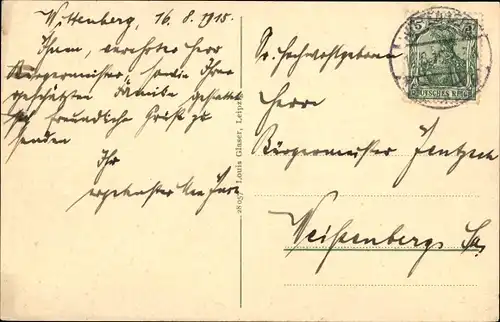 Wittenberg, 16.8.1915.
Ihnen, verehrter Herr
Bürgermeister, sowie Ihrer
geschätzten Familie gestattet
sich freundliche Grüße zu
senden
Ihr
ergebenster
28057 Louis Glaser, Leipzig
Sr. Hochwohlgeboren
Herrn
Bürgermeister
Weißenberg, Sa.
DEUTSCHES REICH
5